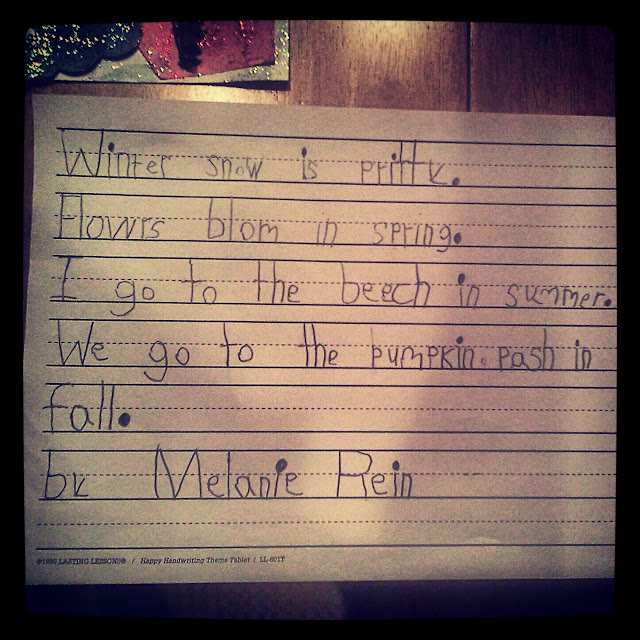 Winter snow is pritty.
Flowrs blom in spring.
I go to the beech in summer.
We go to the pumpkin pash in
fall.
by Melanie Rein
©1999 LASTING LESSONS® / Happy Handwriting Theme Tablet / LL-601T